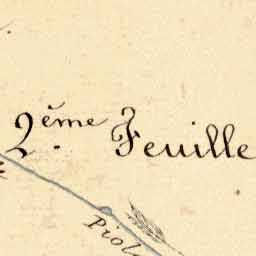 2.ème Feuille
Piol